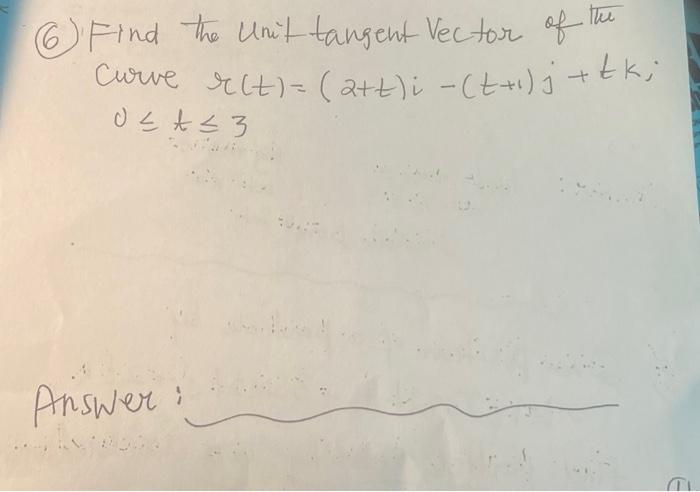 ⑥ Find the unit tangent Vector of the
Curve r(t) = (2+t)i - (t+1)j + tk;
0 ≤ t ≤ 3
Answer: